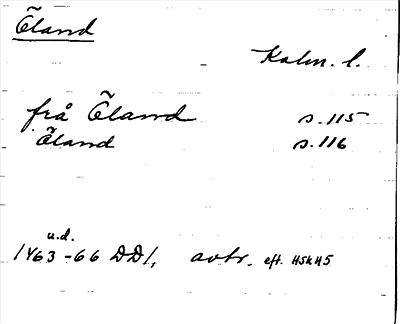 Õland
Kalm. l.
frå Õland s. 115
Õland s. 116
u.d.
/1463-66 DD/, avtr. eft. HSH45